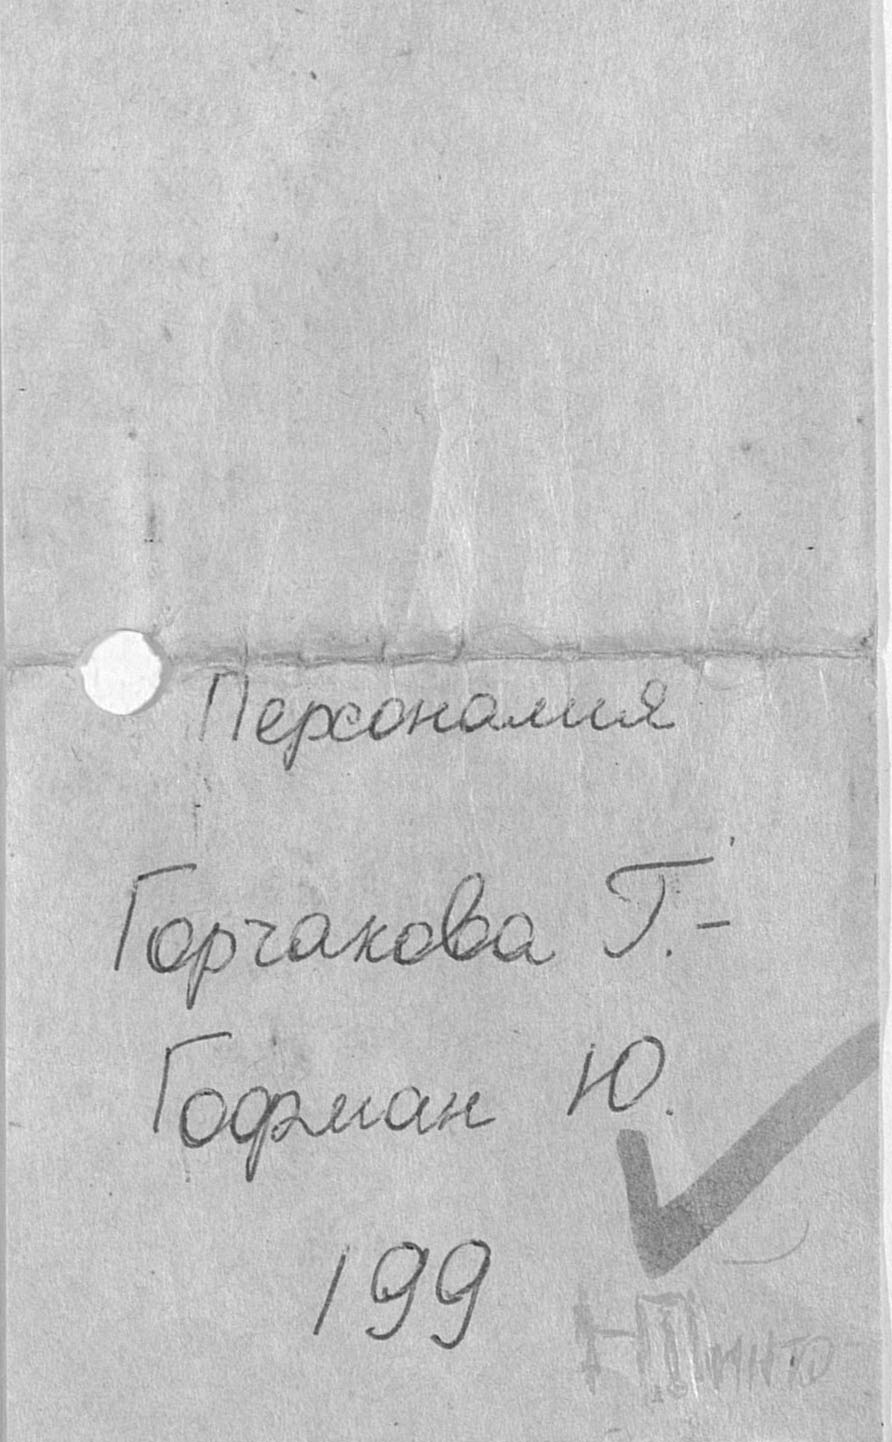 Персоналия
Горчакова Т.-
Гофман Ю.
199